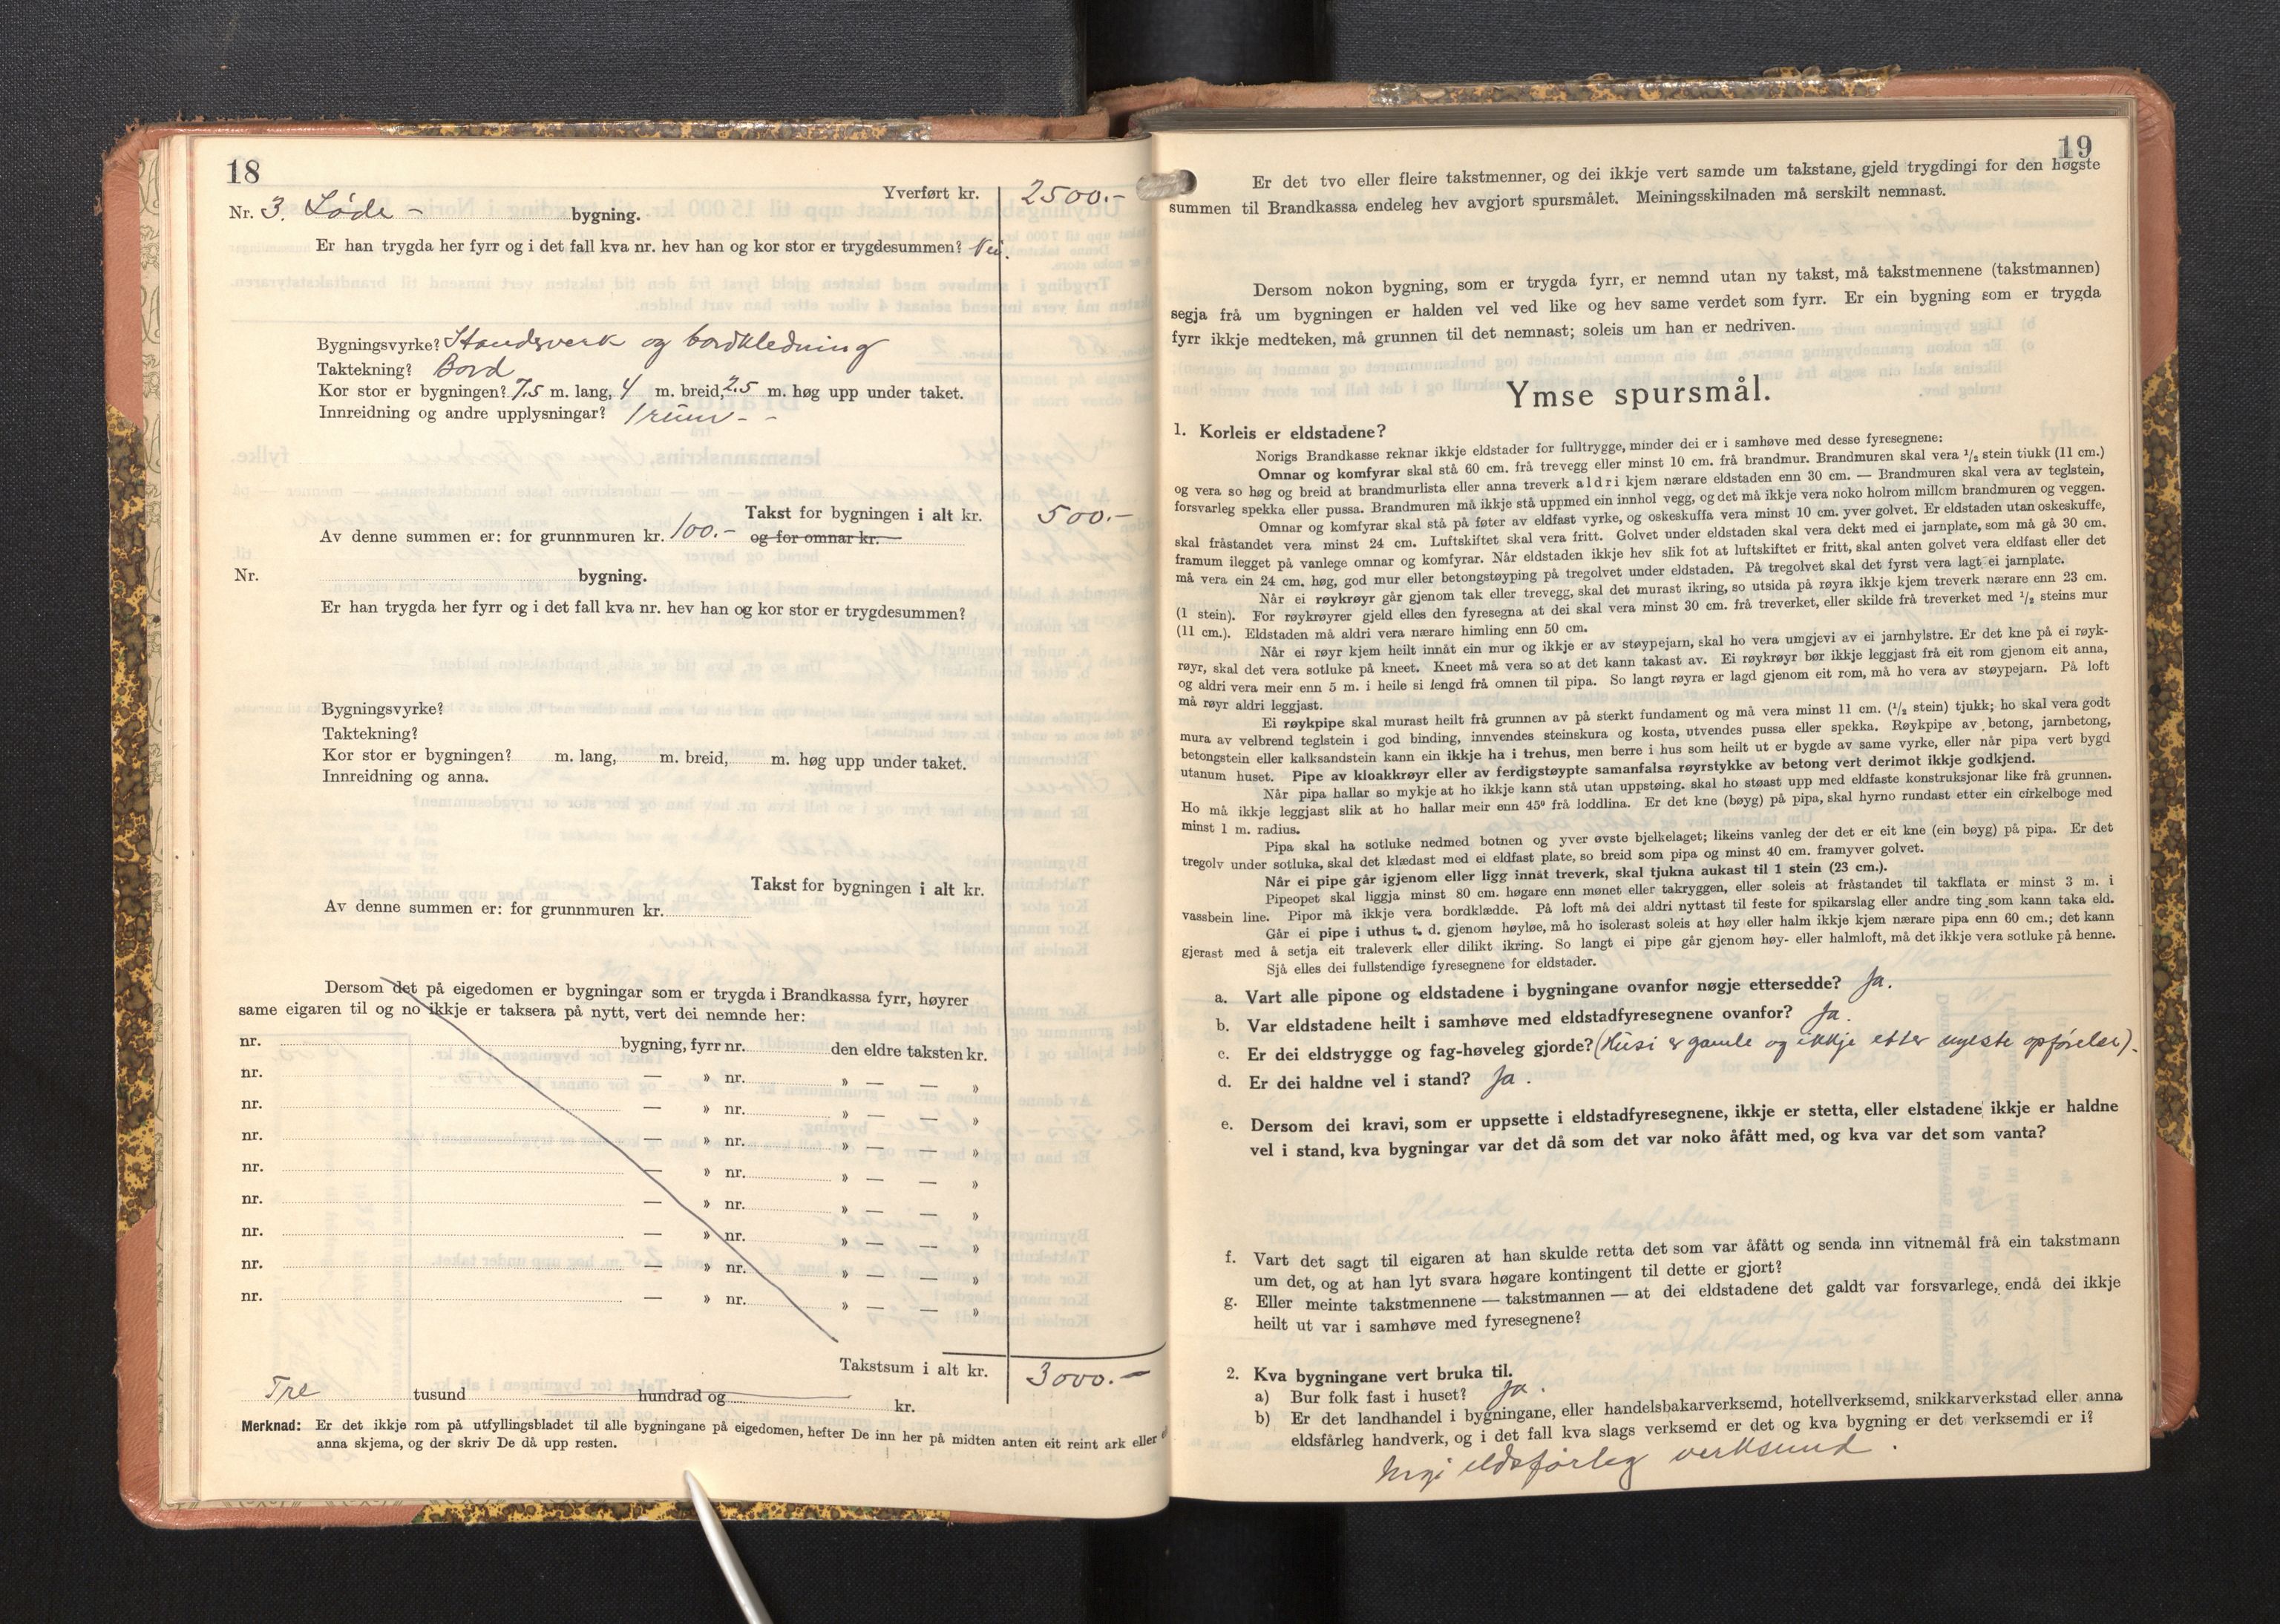 18
Yverført kr. 2500.-
Nr. 3. Löde - bygning.
Er han trygda her fyrr og i det fall kva nr. hev han og kor stor er trygdesummen? Nei.
Bygningsvyrke? Standsverk og bordkledning
Taktekning? Bord
Kor stor er bygningen? 7.5 m. lang, 4 m. breid, 2.5 m. høg upp under taket.
Innreidning og andre upplysningar? 1 rum - -
Takst for bygningen i alt kr. 500.-
Av denne summen er: for grunnmuren kr. 100.- og for omnar kr.
Nr. bygning.
Er han trygda her fyrr og i det fall kva nr. hev han og kor stor er trygdesummen?
Bygningsvyrke?
Taktekning?
Kor stor er bygningen? m. lang, m. breid, m. høg upp under taket.
Innreidning og anna.
Takst for bygningen i alt kr.
Av denne summen er: for grunnmuren kr.
Dersom det på eigedomen er bygningar som er trygda i Brandkassa fyrr, høyrer
same eigaren til og no ikkje er taksera på nytt, vert dei nemnde her:
nr. bygning, fyrr nr. den eldre taksten kr.
nr. — » nr. » — — »
nr. — » nr. » — — »
nr. — » nr. » — — »
nr. — » nr. » — — »
nr. — » nr. » — — »
nr. — » nr. » — — »
nr. — » nr. » — — »
nr. — » nr. » — — »
Takstsum i alt kr. 3000.-
Tre tusund hundrad og kr.
Merknad: Er det ikkje rom på utfyllingsbladet til alle bygningane på eigedomen, hefter De inn her på midten anten eit reint ark eller
anna skjema, og der skriv De då upp resten.
19
Er det tvo eller fleire takstmenner, og dei ikkje vert samde um takstane, gjeld trygdingi for den høgste
summen til Brandkassa endeleg hev avgjort spursmålet. Meiningsskilnaden må serskilt nemnast.
Dersom nokon bygning, som er trygda fyrr, er nemnd utan ny takst, må takstmennene (takstmannen)
segja frå um bygningen er halden vel ved like og hev same verdet som fyrr. Er ein bygning som er trygda
fyrr ikkje medteken, må grunnen til det nemnast; soleis um han er nedriven.
Ymse spursmål.
1. Korleis er eldstadene?
Norigs Brandkasse reknar ikkje eldstader for fulltrygge, minder dei er i samhøve med desse fyresegnene:
Omnar og komfyrar skal stå 60 cm. frå trevegg eller minst 10 cm. frå brandmur. Brandmuren skal vera 1/2 stein tjukk (11 cm.)
og vera so høg og breid at brandmurlista eller anna treverk aldri kjem nærare eldstaden enn 30 cm. — Brandmuren skal vera av teglstein,
forsvarleg spekka eller pussa. Brandmuren må ikkje stå uppmed ein innhol vegg, og det må ikkje vera noko holrom millom brandmuren og veggen.
Omnar og komfyrar skal stå på føter av eldfast vyrke, og oskeskuffa vera minst 10 cm. yver golvet. Er eldstaden utan oskeskuffe,
skal fråstandet vera minst 24 cm. Luftskiftet skal vera fritt. Golvet under eldstaden skal vera dekt med ei jarnplate, som må gå 30 cm.
framum ilegget på vanlege omnar og komfyrar. Når eldstaden ikkje hev slik fot at luftskiftet er fritt, skal anten golvet vera eldfast eller det
må vera ein 24 cm. høg, god mur eller betongstøyping på tregolvet under eldstaden. På tregolvet skal det fyrst vera lagt ei jarnplate.
Når ei røykrøyr går gjenom tak eller trevegg, skal det murast ikring, so utsida på røyra ikkje kjem treverk nærare enn 23 cm.
(1 stein). For røykrøyrer gjeld elles den fyresegna at dei skal vera minst 30 cm. frå treverket, eller skilde frå treverket med 1/2 steins mur
(11 cm.). Eldstaden må aldri vera nærare himling enn 50 cm.
Når ei røyr kjem heilt innåt ein mur og ikkje er av støypejarn, skal ho vera umgjevi av ei jarnhylstre. Er det kne på ei røyk-
røyr, skal det vera sotluke på kneet. Kneet må vera so at det kann takast av. Ei røykrøyr bør ikkje leggjast frå eit rom gjenom eit anna,
og aldri vera meir enn 5 m. i heile si lengd frå omnen til pipa. So langt røyra er lagd gjenom eit rom, må ho vera av støypejarn. På loft
må røyr aldri leggjast.
Ei røykpipe skal murast heilt frå grunnen av på sterkt fundament og må vera minst 11 cm. (1/2 stein) tjukk; ho skal vera godt
mura av velbrend teglstein i god binding, innvendes steinskura og kosta, utvendes pussa eller spekka. Røykpipe av betong, jarnbetong,
betongstein eller kalksandstein kann ein ikkje ha i trehus, men berre i hus som heilt ut er bygde av same vyrke, eller når pipa vert bygd
utanum huset. Pipe av kloakkrøyr eller av ferdigstøypte samanfalsa røyrstykke av betong vert derimot ikkje godkjend.
Når pipa hallar so mykje at ho ikkje kann stå utan uppstøing. skal ho støast upp med eldfaste konstruksjonar like frå grunnen.
Ho må ikkje leggjast slik at ho hallar meir enn 45° frå loddlina. Er det kne (bøyg) på pipa, skal hyrno rundast etter ein cirkelboge med
minst 1 m. radius.
Pipa skal ha sotluke nedmed botnen og yver øvste bjelkelaget; likeins vanleg der det er eit kne (ein bøyg) på pipa. Er det
tregolv under sotluka, skal det klædast med ei eldfast plate, so breid som pipa og minst 40 cm. framyver golvet.
Når ei pipe går igjenom eller ligg innåt treverk, skal tjukna aukast til 1 stein (23 cm.).
Pipeopet skal liggja minst 80 cm. høgare enn mønet eller takryggen, eller soleis at fråstandet til takflata er minst 3 m. i
vassbein line. Pipor må ikkje vera bordklædde. På loft må dei aldri nyttast til feste for spikarslag eller andre ting som kann taka eld.
Går ei pipe i uthus t. d. gjenom høyløe, må ho isolerast soleis at høy eller halm ikkje kjem nærare pipa enn 60 cm.; det kann
gjerast med å setja eit traleverk eller dilikt ikring. So langt ei pipe går gjenom høy- eller halmloft, må det ikkje vera sotluke på henne.
Sjå elles dei fullstendige fyresegnene for eldstader.
a. Vart alle pipone og eldstadene i bygningane ovanfor nøgje ettersedde? Ja.
b. Var eldstadene heilt i samhøve med eldstadfyresegnene ovanfor? Ja.
c. Er dei eldstrygge og fag-høveleg gjorde? (Husi er gamle og ikkje etter nyeste opförelse).
d. Er dei haldne vel i stand? Ja.
e. Dersom dei kravi, som er uppsette i eldstadfyresegnene, ikkje er stetta, eller elstadene ikkje er haldne
vel i stand, kva bygningar var det då som det var noko åfått med, og kva var det som vanta?
f. Vart det sagt til eigaren at han skulde retta det som var åfått og senda inn vitnemål frå ein takstmann
um det, og at han lyt svara høgare kontingent til dette er gjort?
g. Eller meinte takstmennene — takstmannen — at dei eldstadene det galdt var forsvarlege, endå dei ikkje
heilt ut var i samhøve med fyresegnene?
2. Kva bygningane vert bruka til.
a) Bur folk fast i huset? Ja.
b) Er det landhandel i bygningane, eller handelsbakarverksemd, hotellverksemd, snikkarverkstad eller anna
eldsfårleg handverk, og i det fall kva slags verksemd er det og kva bygning er det verksemdi er i?
Ingi eldsfårleg verksemd.